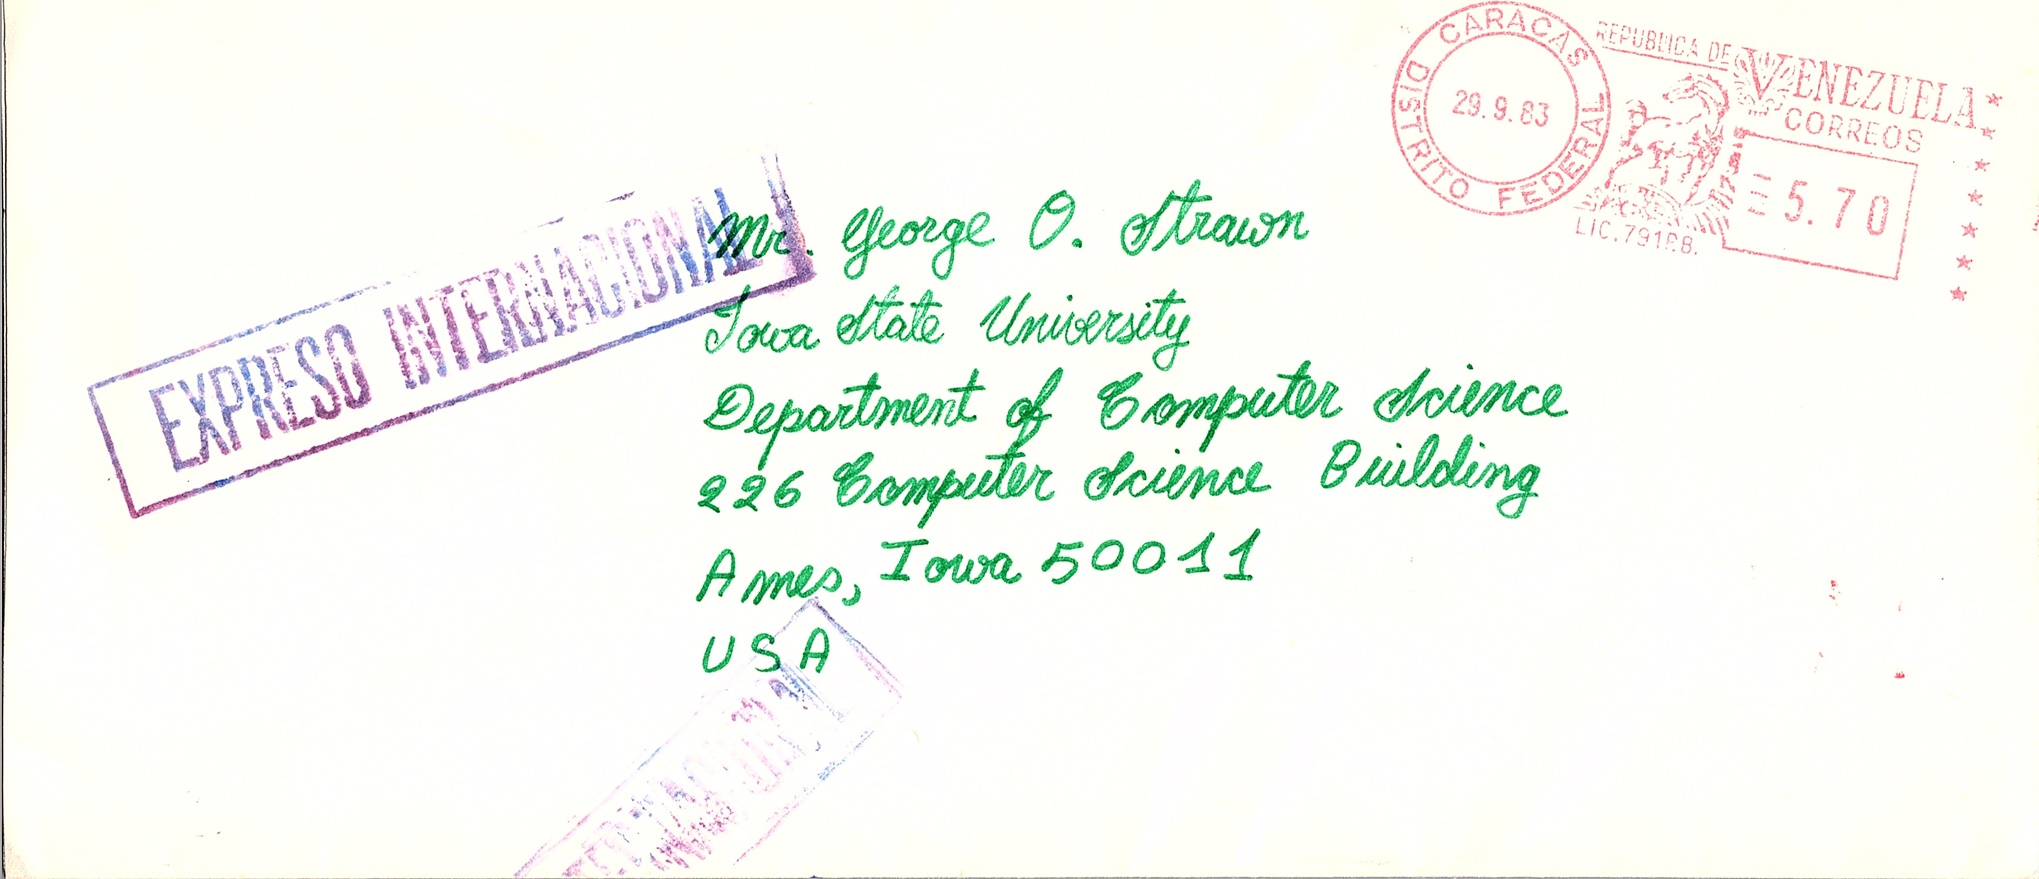 CARACAS
DISTRITO FEDERAL
29.9.83
REPUBLICA DE VENEZUELA
CORREOS
5.70
EXPRESO INTERNACIONAL
Mr. George O. Strawn
Iowa State University
Department of Computer Science
226 Computer Science Building
Ames, Iowa 50011
USA